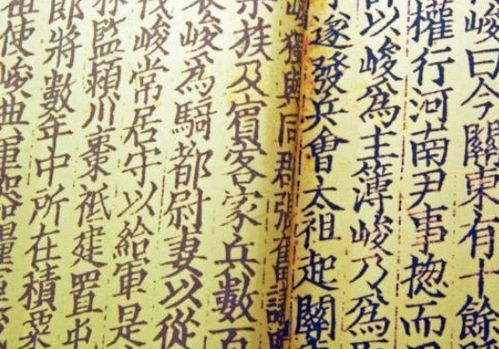 峻曰今關東有十餘
權行河南尹事揔而
以峻為主簿峻乃為
遂發兵會太祖起關
與同郡張奮議
宗族及賓客家兵數百
峻為騎都尉妻以從
伐峻常居守以給軍是
林監潁川棗祗建置屯
郎將數年中所在積粟
祖使峻典軍器糧運